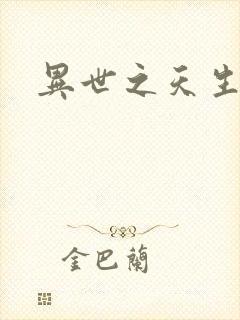 異世之天生
金巴蘭